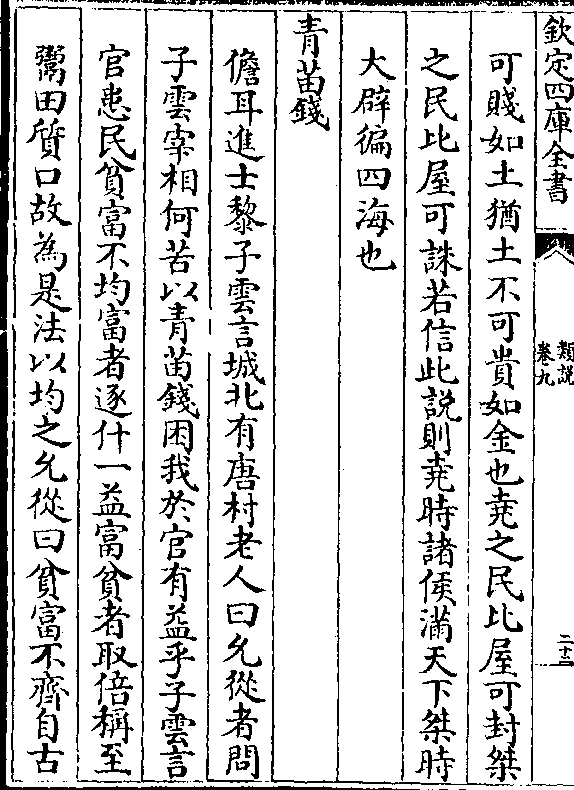 欽定四庫全書
類說
卷九
二十二
可賤如土猶土不可貴如金也堯之民比屋可封桀
之民比屋可誅若信此說則堯時諸侯滿天下桀時
大辟徧四海也
青苗錢
儋耳進士黎子雲言城北有唐村老人曰允從者問
子雲宰相何苦以青苗錢困我於官有益乎子雲言
官患民貧富不均富者逐什一益富貧者取倍稱至
鬻田質口故為是法以均之允從曰貧富不齊自古